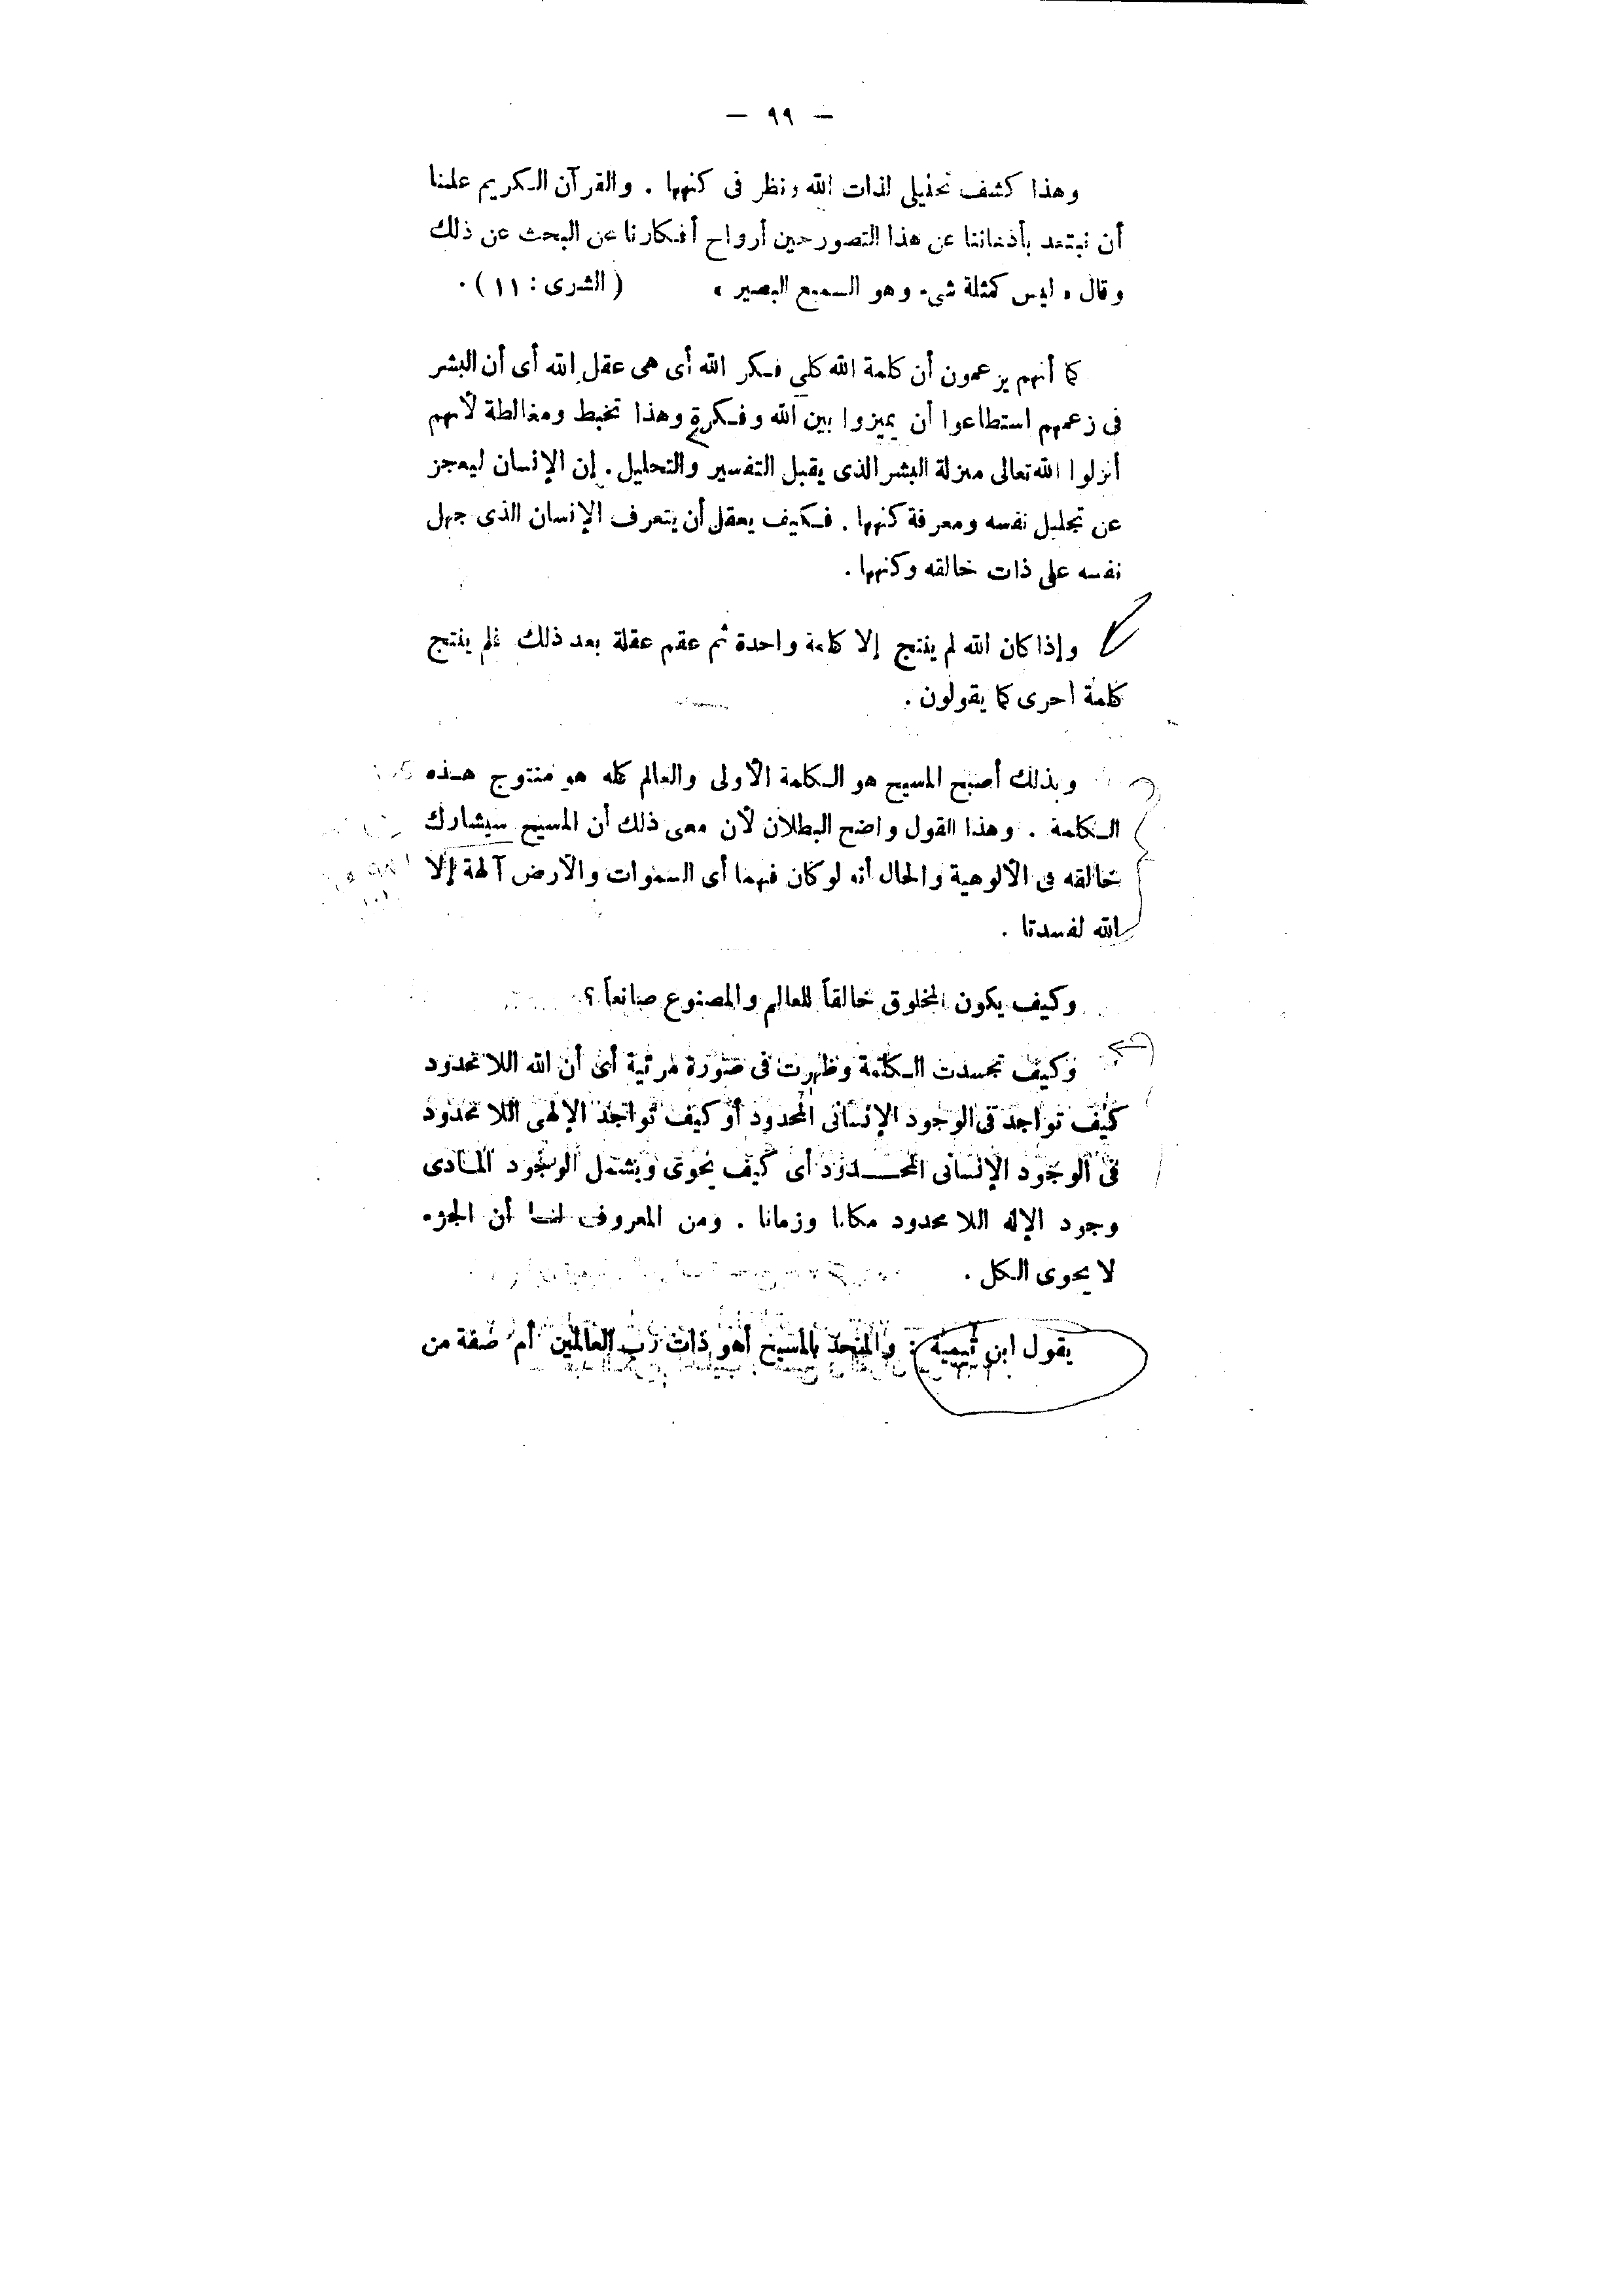 — ٩٩ —
وهذا كشف تحليلى لذات الله ونظر فى كنهها . والقرآن الكريم علمنا
أن نبتعد بأذهاننا عن هذا التصور حين أرواح أفكارنا عن البحث عن ذلك
وقال « ليس كمثلة شىء وهو السميع البصير » ( الشرى : ١١ ) .
كما أنهم يزعمون أن كلمة الله كلى فكر الله أى هى عقل الله أى أن البشر
فى زعمهم استطاعوا أن يميزوا بين الله وفكرة وهذا تخبط ومغالطة لأنهم
أنزلوا الله تعالى منزلة البشر الذى يقبل التفسير والتحليل . إن الإنسان ليعجز
عن تحليل نفسه ومعرفة كنهها . فكيف يعقل أن يتعرف الإنسان الذى جهل
نفسه على ذات خالقه وكنهها .
وإذا كان الله لم ينتج إلا كلمة واحدة ثم عقم عقلة بعد ذلك فلم ينتج
كلمة احرى كما يقولون .
وبذلك أصبح المسيح هو الكلمة الأولى والعالم كله هو منتوج هذه
الكلمة . وهذا القول واضح البطلان لأن معى ذلك أن المسيح سيشارك
خالقه فى الألوهية والحال أنه لو كان فيهما أى السموات والأرض آلهة إلا
الله لفسدتا .
وكيف يكون المخلوق خالقاً للعالم والمصنوع صانعاً ؟
وكيف تجسدت الكلمة وظهرت فى صورة مرئية أى أن الله اللا محدود
كيف تواجد فى الوجود الإنسانى المحدود أو كيف تواجد الإلهى اللا محدود
فى الوجود الإنسانى المحدود أى كيف يحوى ويشمل الوجود المادى
وجود الإله اللا محدود مكانا وزمانا . ومن المعروف لنا أن الجزء
لا يحوى الكل .
يقول ابن تيمية : والمتحد بالمسيح أهو ذات رب العالمين أم صفة من